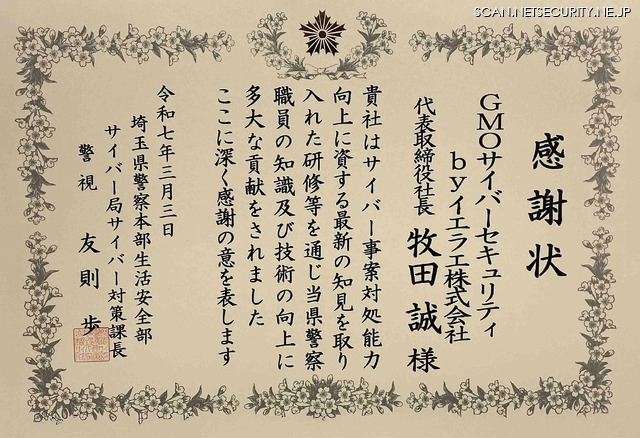 SCAN.NETSECURITY.NE.JP
感謝状
GMOサイバーセキュリティ
byイエラエ株式会社
代表取締役社長 牧田 誠 様
貴社はサイバー事案対処能力
向上に資する最新の知見を取り
入れた研修等を通じ当県警察
職員の知識及び技術の向上に
多大な貢献をされました
ここに深く感謝の意を表します
令和七年三月三日
埼玉県警察本部生活安全部
サイバー局サイバー対策課長
警視 友則 歩